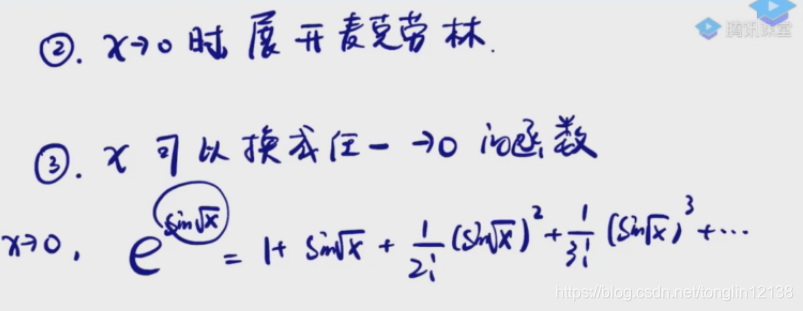 腾讯课堂
②. x→0 时 展开麦克劳林.
③. x 可以换成任一 →0 的函数
x→0, e^{sin√x} = 1 + sin√x + \frac{1}{2!}(sin√x)^2 + \frac{1}{3!}(sin√x)^3 + ⋯
https://blog.csdn.net/tonglin12138